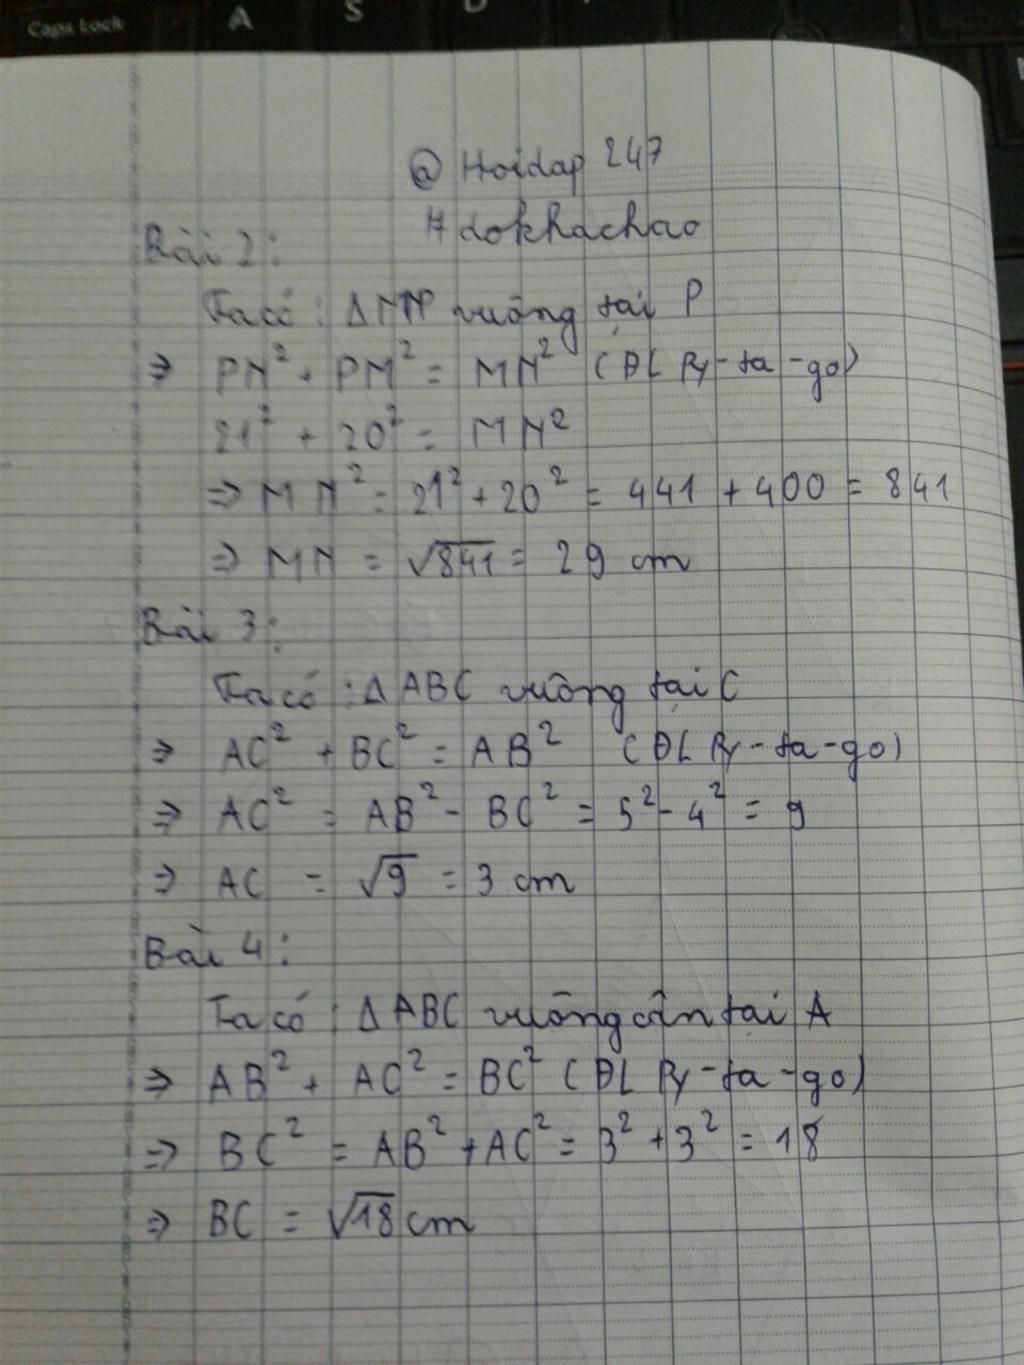 Caps Lock
A
S
D
@ Hoidap 247
# dokhachao
Bài 2:
Ta có : ΔMNP vuông tại P
⇒ PN² + PM² = MN² (ĐL Py-ta-go)
21² + 20² = MN²
⇒ MN² = 21² + 20² = 441 + 400 = 841
⇒ MN = √841 = 29 cm
Bài 3:
Ta có : Δ ABC vuông tại C
⇒ AC² + BC² = AB² (ĐL Py-ta-go)
⇒ AC² = AB² - BC² = 5² - 4² = 9
⇒ AC = √9 = 3 cm
Bài 4:
Ta có : Δ ABC vuông cân tại A
⇒ AB² + AC² = BC² (ĐL Py-ta-go)
⇒ BC² = AB² + AC² = 3² + 3² = 18
⇒ BC = √18 cm